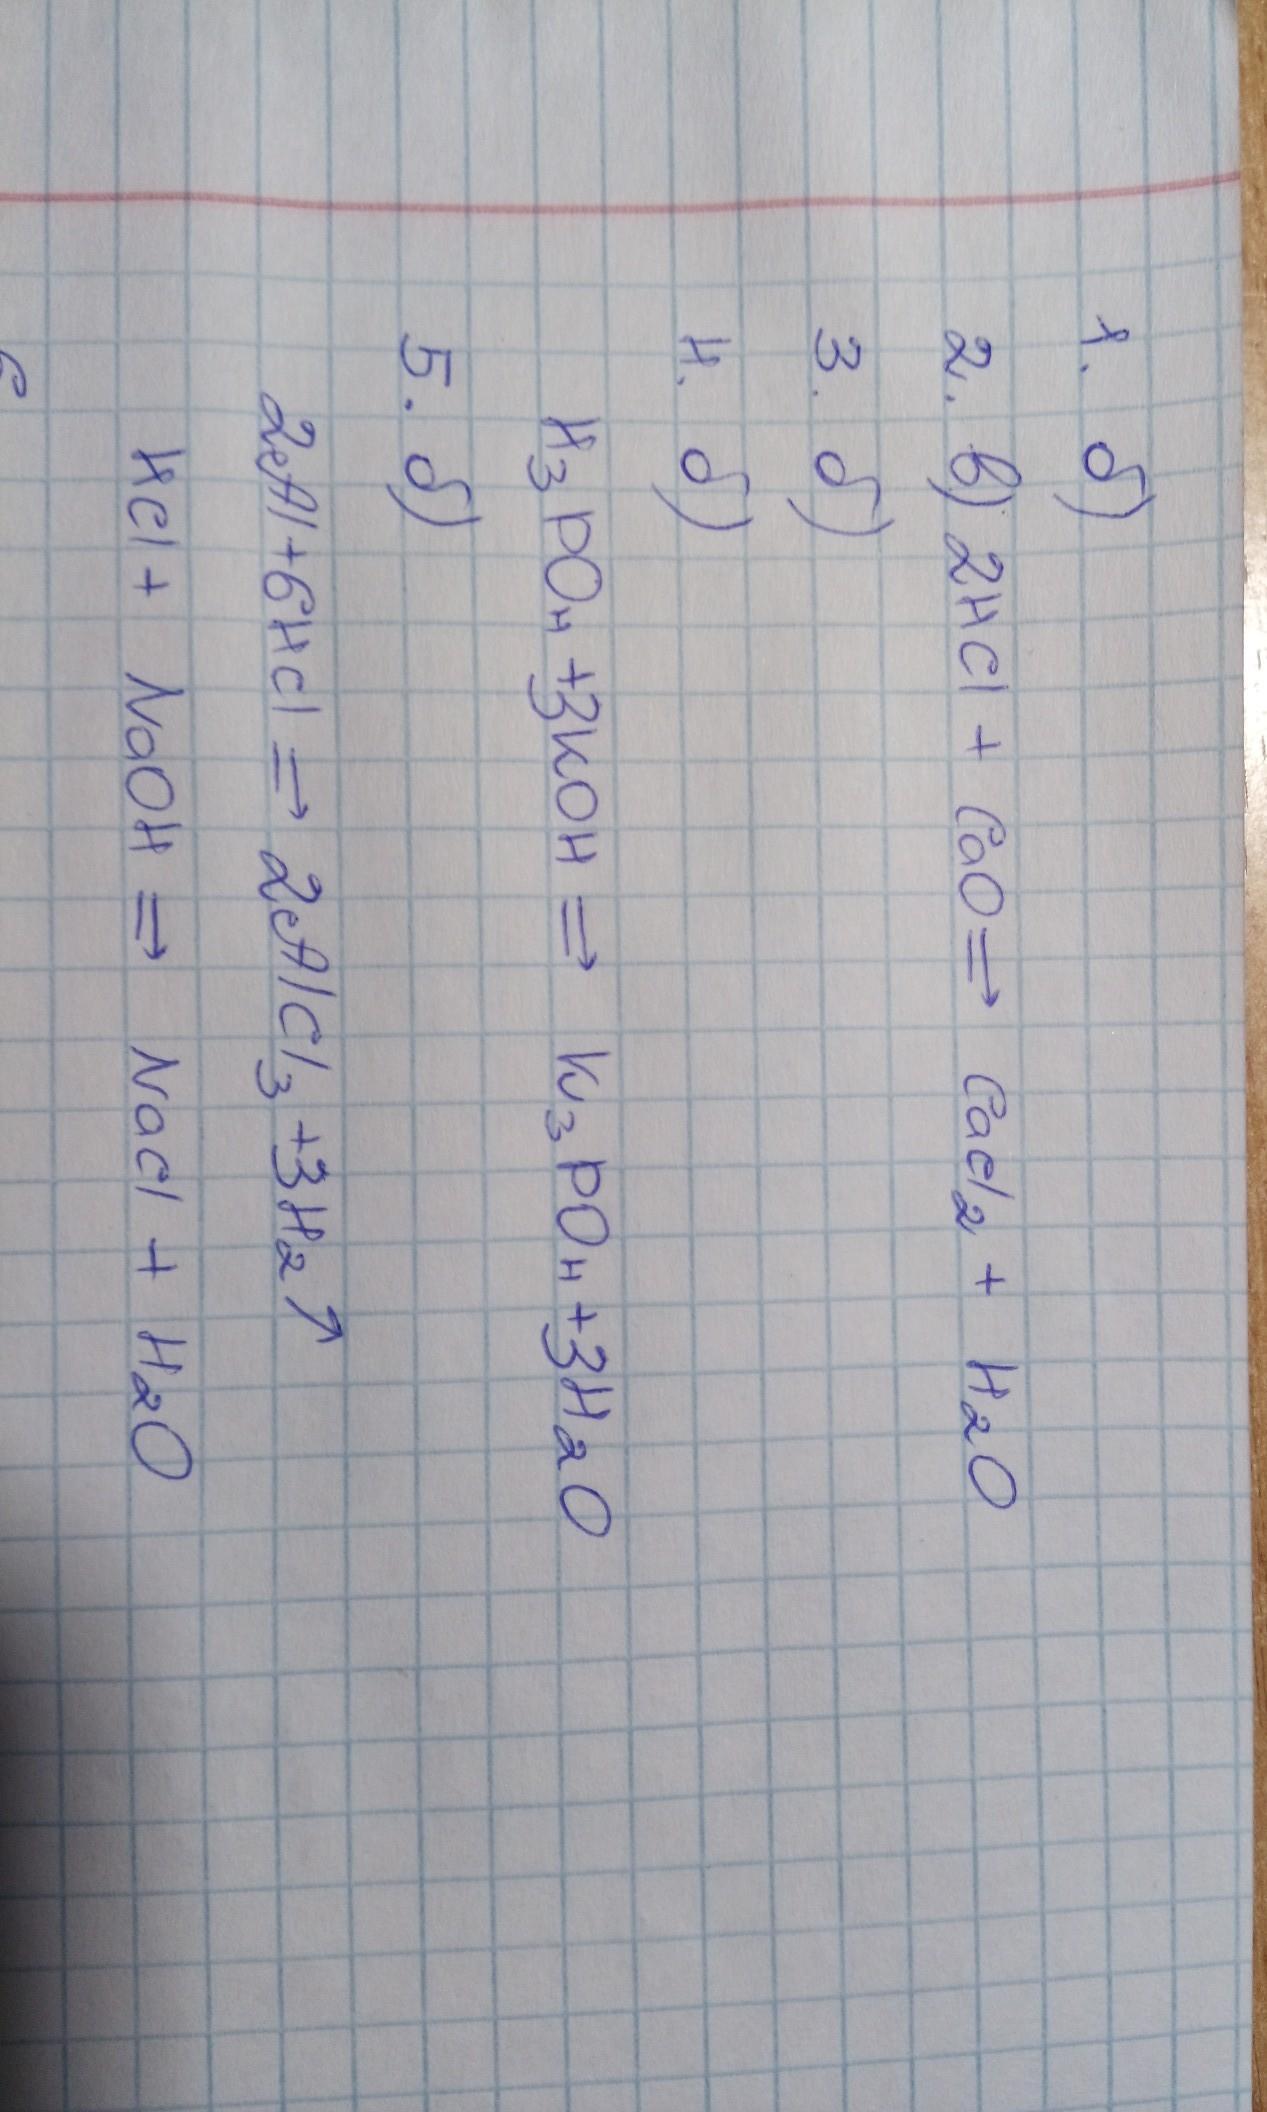 1. б)
2. в) 2HCl + CaO => CaCl₂ + H₂O
3. б)
4. б)
H₃PO₄ + 3KOH => K₃PO₄ + 3H₂O
5. б)
2Al + 6HCl => 2AlCl₃ + 3H₂↑
HCl + NaOH => NaCl + H₂O